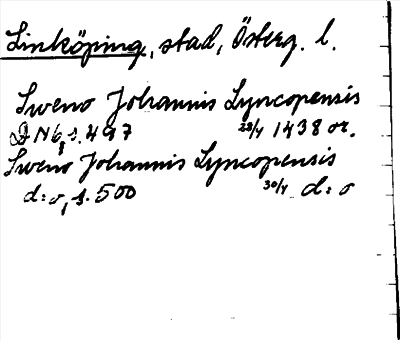 Linköping, stad, Österg. l.
Sweno Johannis Lyncopensis
DN 6, s. 497 28/4 1438 or.
Sweno Johannis Lyncopensis
d:o, s. 500 30/4 d:o